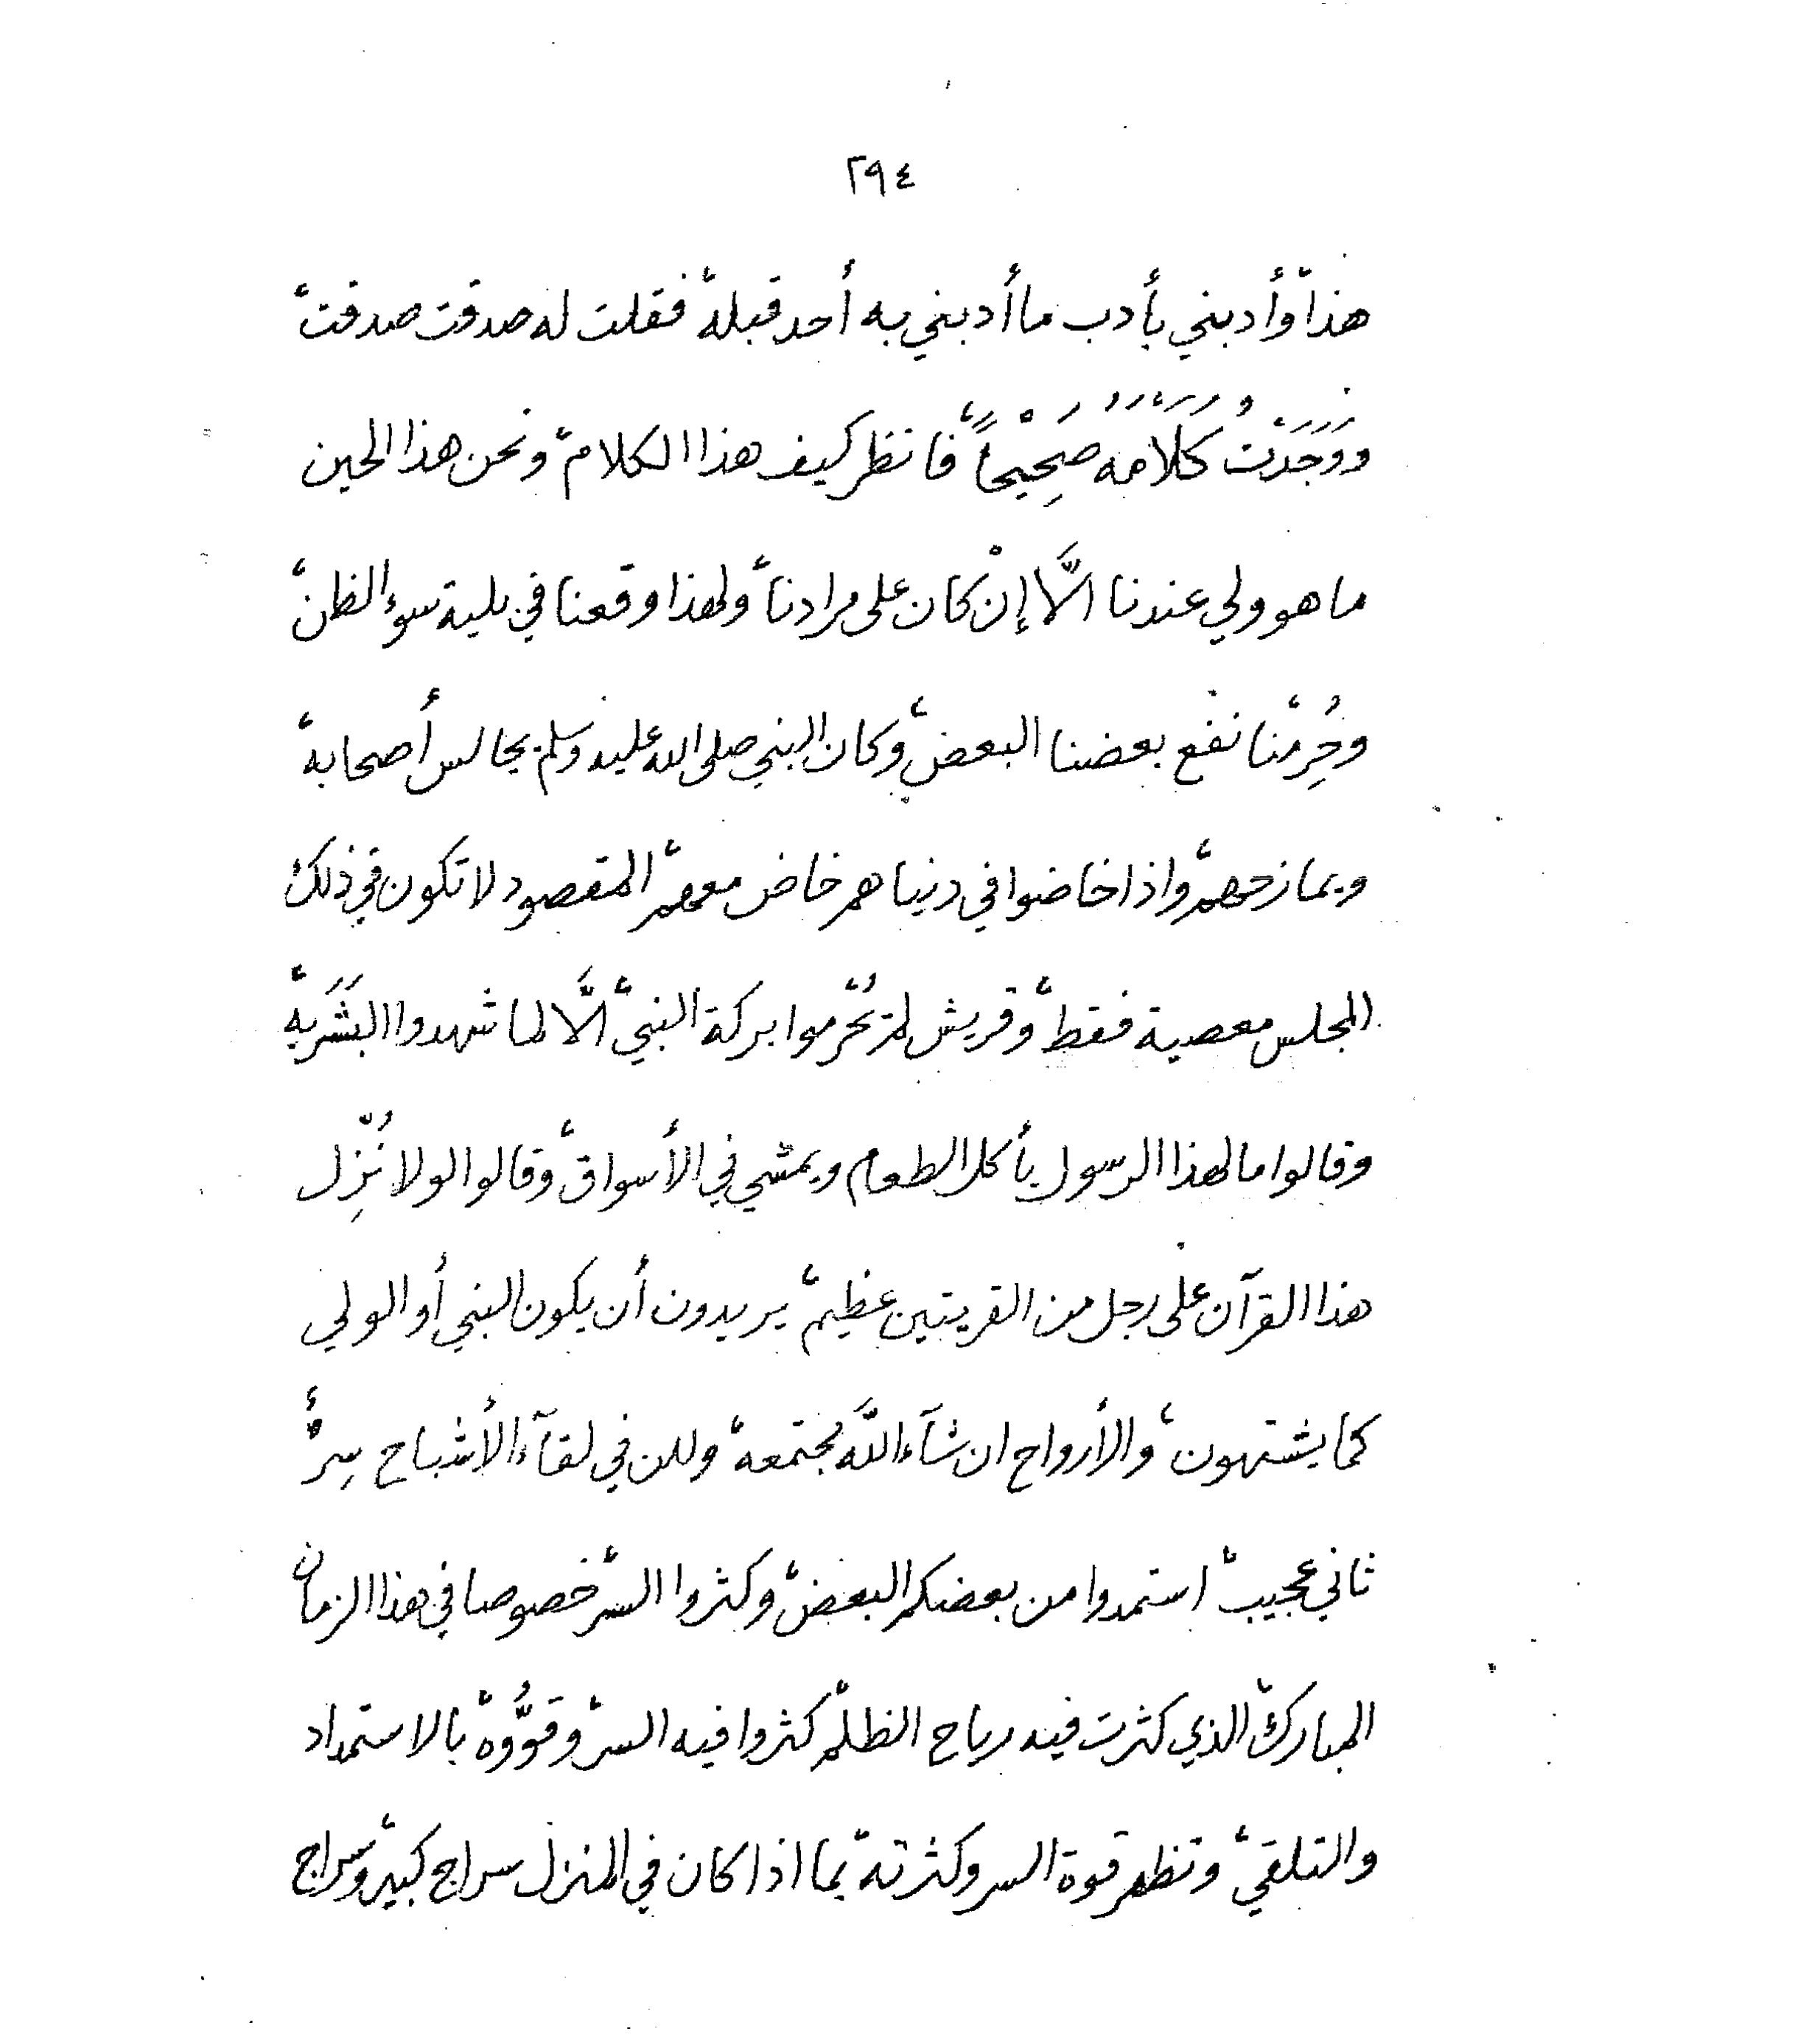 ٢٩٤
هذا، وأدبني بأدب ما أدبني به أحد قبله، فقلت له صدقت صدقت،
وَوَجَدْتُ كَلَامَه صَحِيْحاً، فانظر كيف هذا الكلام، ونحن هذا الحين
ما هو ولي عندنا الَّا إنْ كان على مرادنا، ولهذا وقعنا في بلية سوء الظن،
وحُرِمْنا نفع بعضنا البعض، وكان النبي صلى الله عليه وسلم يجالس أصحابه،
ويمازحهم، واذا خاضوا في دنياهم خاض معهم، المقصود لا تكون في ذلك
المجلس معصية فقط، وقريش لم يُحْرموا بركة النبي، الَّا لما شهدوا البَشَرية،
وقالوا مالهذا الرسول يأكل الطعام ويمشي في الأسواق، وقالوا لولا نُزِّل
هذا القرآن على رجل من القريتين عظيم، يريدون أن يكون النبي أو الولي
كما يشتهون، والأرواح ان شآء اللَّه مجتمعة، ولكن في لقآء الأشباح سِرٌّ
ثاني عجيب، استمدوا من بعضكم البعض، وكثروا السر، خصوصا في هذا الزمان
المبارك، الذي كثرت فيه رياح الظلم، كثروا فيه السر، وقوُّوه، بالاستمداد
والتلقي، وتظهر قوة السر وكثرته، بما اذا كان في المنزل سراج كبير، وسراج